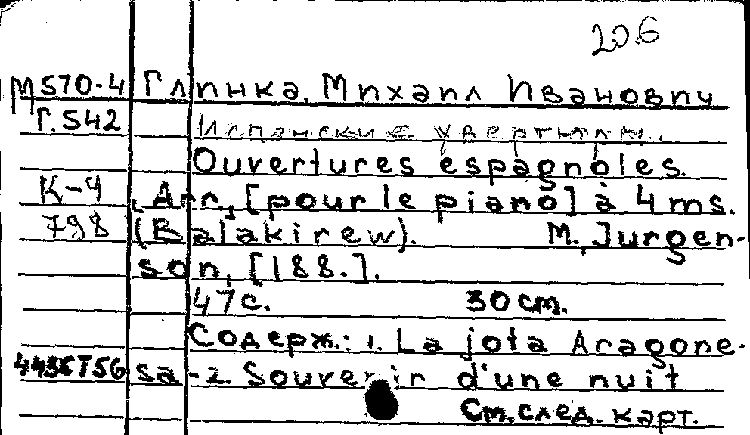 206
М570-4 Глинка, Михаил Иванович
Г.542 Испанские увертюры.
Ouvertures espagnoles.
К-4 Arr. [pour le piano] à 4 ms.
798 (Balakirew). M., Jurgen-
son, [188.].
47 с. 30 см.
Содерж.: 1. La jota Aragone-
sa - 2. Souvenir d'une nuit
См. след. карт.